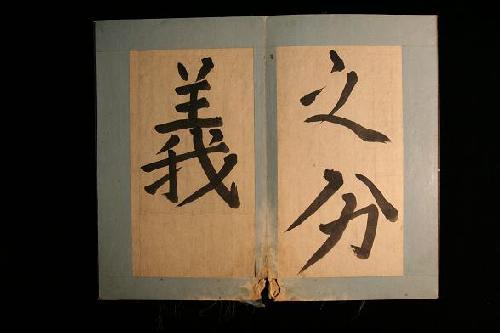 之分
義